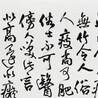 無竹令人俗
人瘦尚可肥
俗士不可醫
傍人笑此言
似高還似癡